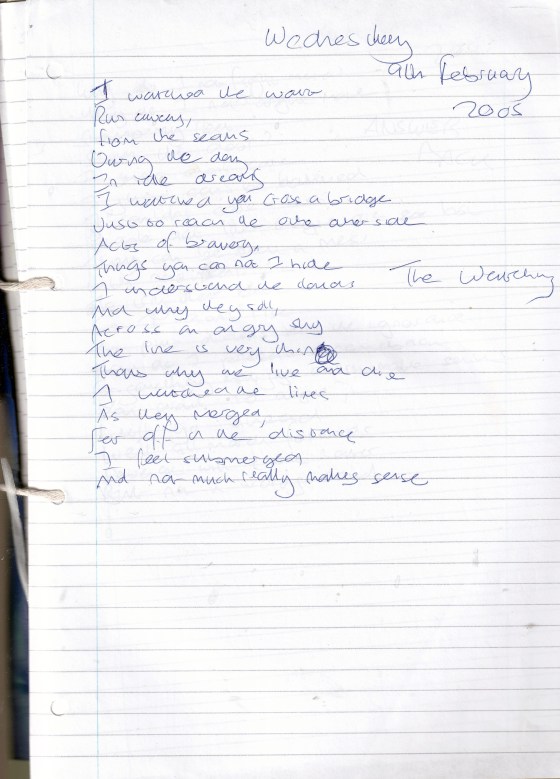 Wednesday
9th February
2005
I watched the wave
Run away,
from the seams
During the day
In idle dreams
I watched you cross a bridge
Just to reach the other side
Acts of bravery,
Things you can not I hide
I understand the clouds
The Watching
And why they roll,
Across an angry sky
The line is very thin
Thats why we live and die
I watched the lines
As they merged,
Far off in the distance
I feel submerged
And not much really makes sense